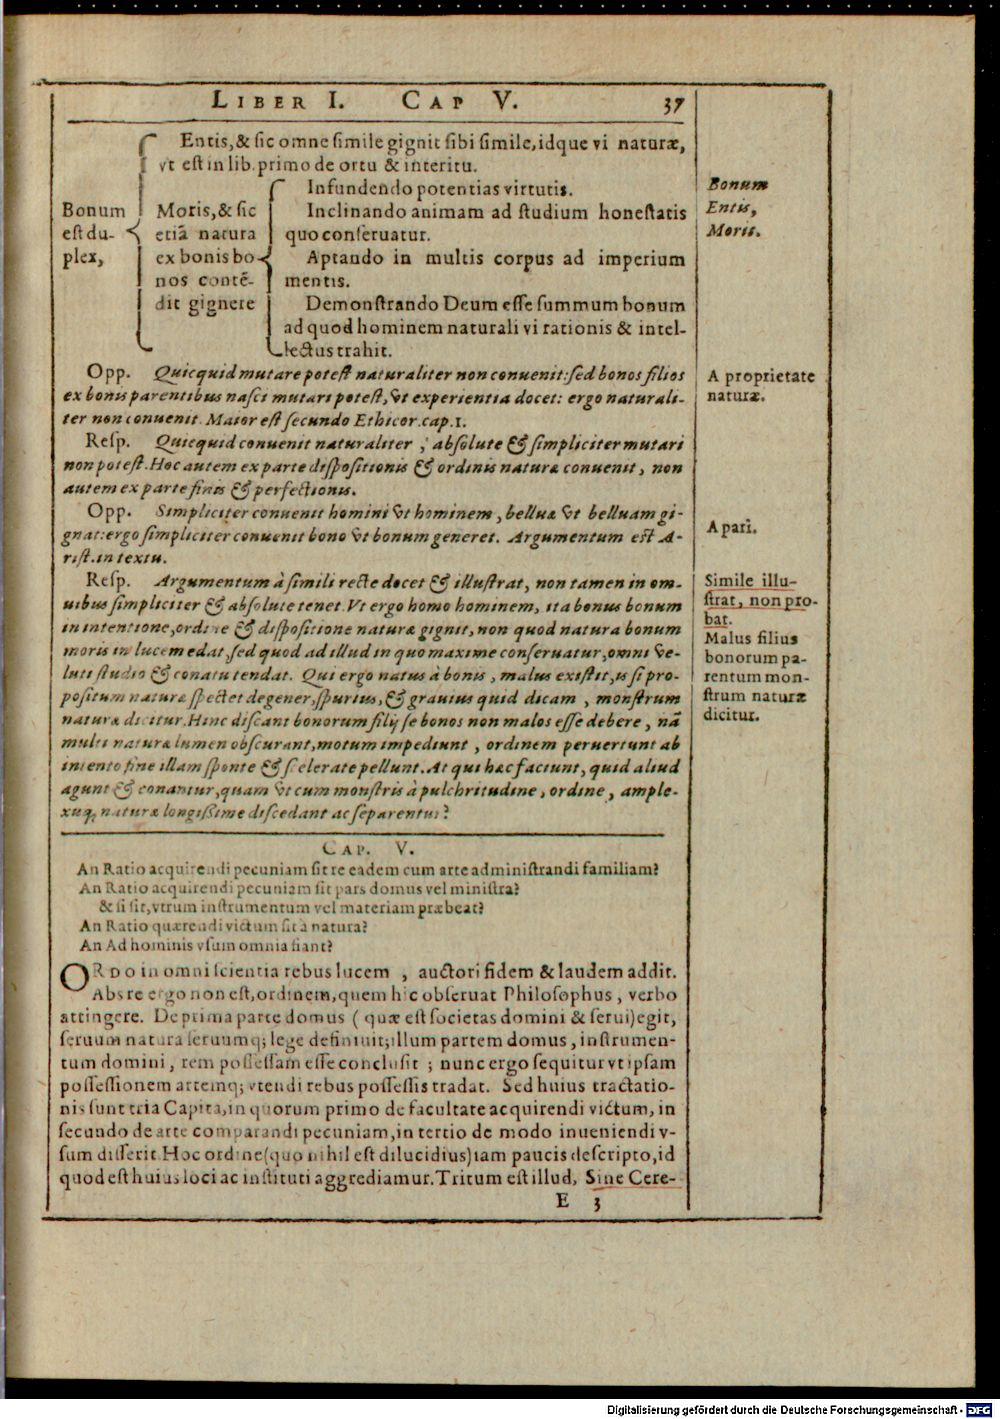 LIBER I. CAP V. 37
Entis, & sic omne simile gignit sibi simile, idque vi naturæ,
vt est in lib. primo de ortu & interitu.
Bonum est du-
plex,
Moris, & sic
etiā natura
ex bonis bo-
nos contē-
dit gignere
Infundendo potentias virtutis.
Inclinando animam ad studium honestatis
quo conseruatur.
Aptando in multis corpus ad imperium
mentis.
Demonstrando Deum esse summum bonum
ad quod hominem naturali vi rationis & intel-
lectus trahit.
Bonum
Entis,
Moris.
Opp. Quicquid mutare potest naturaliter non conuenit: sed bonos filios
ex bonis parentibus nasci mutari potest, vt experientia docet: ergo naturali-
ter non conuenit. Maior est secundo Ethicor. cap. 1.
A proprietate
naturæ.
Resp. Quicquid conuenit naturaliter, absolute & simpliciter mutari
non potest. Hoc autem ex parte dispositionis & ordinis naturæ conuenit, non
autem ex parte finis & perfectionis.
Opp. Simpliciter conuenit homini vt hominem, belluæ vt belluam gi-
gnat: ergo simpliciter conuenit bono vt bonum generet. Argumentum est A-
rist. in textu.
A pari.
Resp. Argumentum à simili recte docet & illustrat, non tamen in om-
nibus simpliciter & absolute tenet. Vt ergo homo hominem, ita bonus bonum
in intentione, ordine & dispositione naturæ gignit, non quod natura bonum
moris in lucem edat, sed quod ad illud in quo maxime conseruatur, omni ve-
luti studio & conatu tendat. Qui ergo natus à bonis, malus existit, is si pro-
positum naturæ spectet degener, spurius, & grauius quid dicam, monstrum
naturæ dicitur. Hinc discant bonorum filij se bonos non malos esse debere, nā
multi naturæ lumen obscurant, motum impediunt, ordinem peruertunt ab
intento fine illam sponte & scelerate pellunt. At qui hæc faciunt, quid aliud
agunt & conantur, quam vt cum monstris à pulchritudine, ordine, ample-
xuq; naturæ longissime discedant ac separentur?
Simile illu-
strat, non pro-
bat.
Malus filius
bonorum pa-
rentum mon-
strum naturæ
dicitur.
CAP. V.
An Ratio acquirendi pecuniam sit re eadem cum arte administrandi familiam?
An Ratio acquirendi pecuniam sit pars domus vel ministra?
& si sit, vtrum instrumentum vel materiam præbeat?
An Ratio quærendi victum sit à natura?
An Ad hominis vsum omnia fiant?
ORDO in omni scientia rebus lucem, auctori fidem & laudem addit.
Abs re ergo non est, ordinem, quem hic obseruat Philosophus, verbo
attingere. De prima parte domus ( quæ est societas domini & serui) egit,
seruum natura seruumq; lege definiuit; illum partem domus, instrumen-
tum domini, rem possessam esse conclusit; nunc ergo sequitur vt ipsam
possessionem artemq; vtendi rebus possessis tradat. Sed huius tractatio-
nis sunt tria Capita, in quorum primo de facultate acquirendi victum, in
secundo de arte comparandi pecuniam, in tertio de modo inueniendi v-
sum disserit. Hoc ordine (quo nihil est dilucidius) iam paucis descripto, id
quod est huius loci ac instituti aggrediamur. Tritum est illud, Sine Cere-
E 3
Digitalisierung gefördert durch die Deutsche Forschungsgemeinschaft - DFG